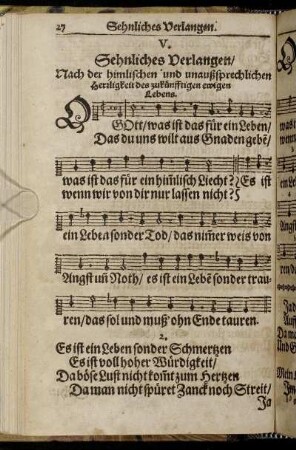 27 Sehnliches Verlangen.
V.
Sehnliches Verlangen/
Nach der himlischen und unaußsprechlichen
Herrligkeit des zukünfftigen ewigen
Lebens.
O GOtt/ was ist das für ein Leben/
Das du uns wilt aus Gnaden gebē/
was ist das für ein him̄lisch Liecht?} Es ist
wenn wir von dir nur lassen nicht?}
ein Leben sonder Tod/ das nim̄er weis von
Angst uñ Noth/ es ist ein Lebē sonder trau-
ren/ das sol und muß ohn Ende tauren.
2.
Es ist ein Leben sonder Schmertzen
Es ist voll hoher Würdigkeit/
Da böse Lust nicht kom̄t zum Hertzen
Da man nicht spüret Zanck noch Streit/
Ja